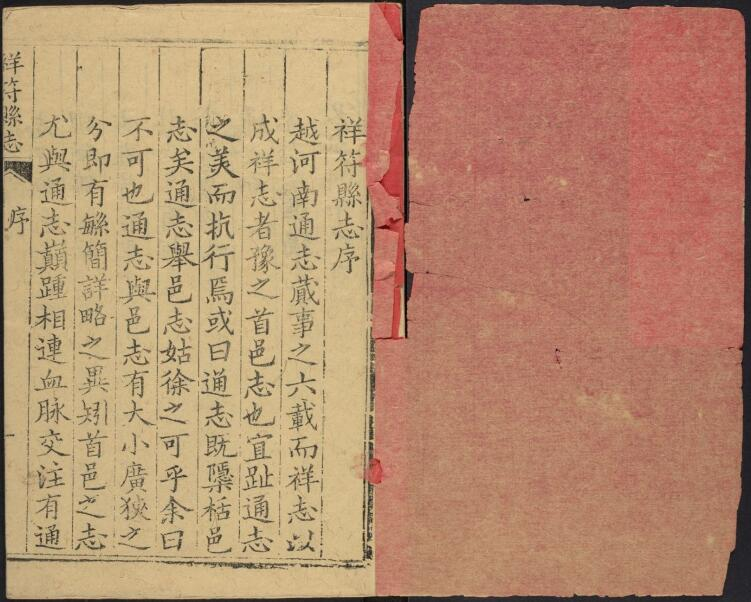 祥符縣志序
越河南通志蕆事之六載而祥志以
成祥志者豫之首邑志也宜趾通志
之美而抗行焉或曰通志既檃栝邑
志矣通志舉邑志姑徐之可乎余曰
不可也通志與邑志有大小廣狹之
分即有緐簡詳略之異矧首邑之志
尤與通志顚踵相連血脉交注有通
祥符縣志
序